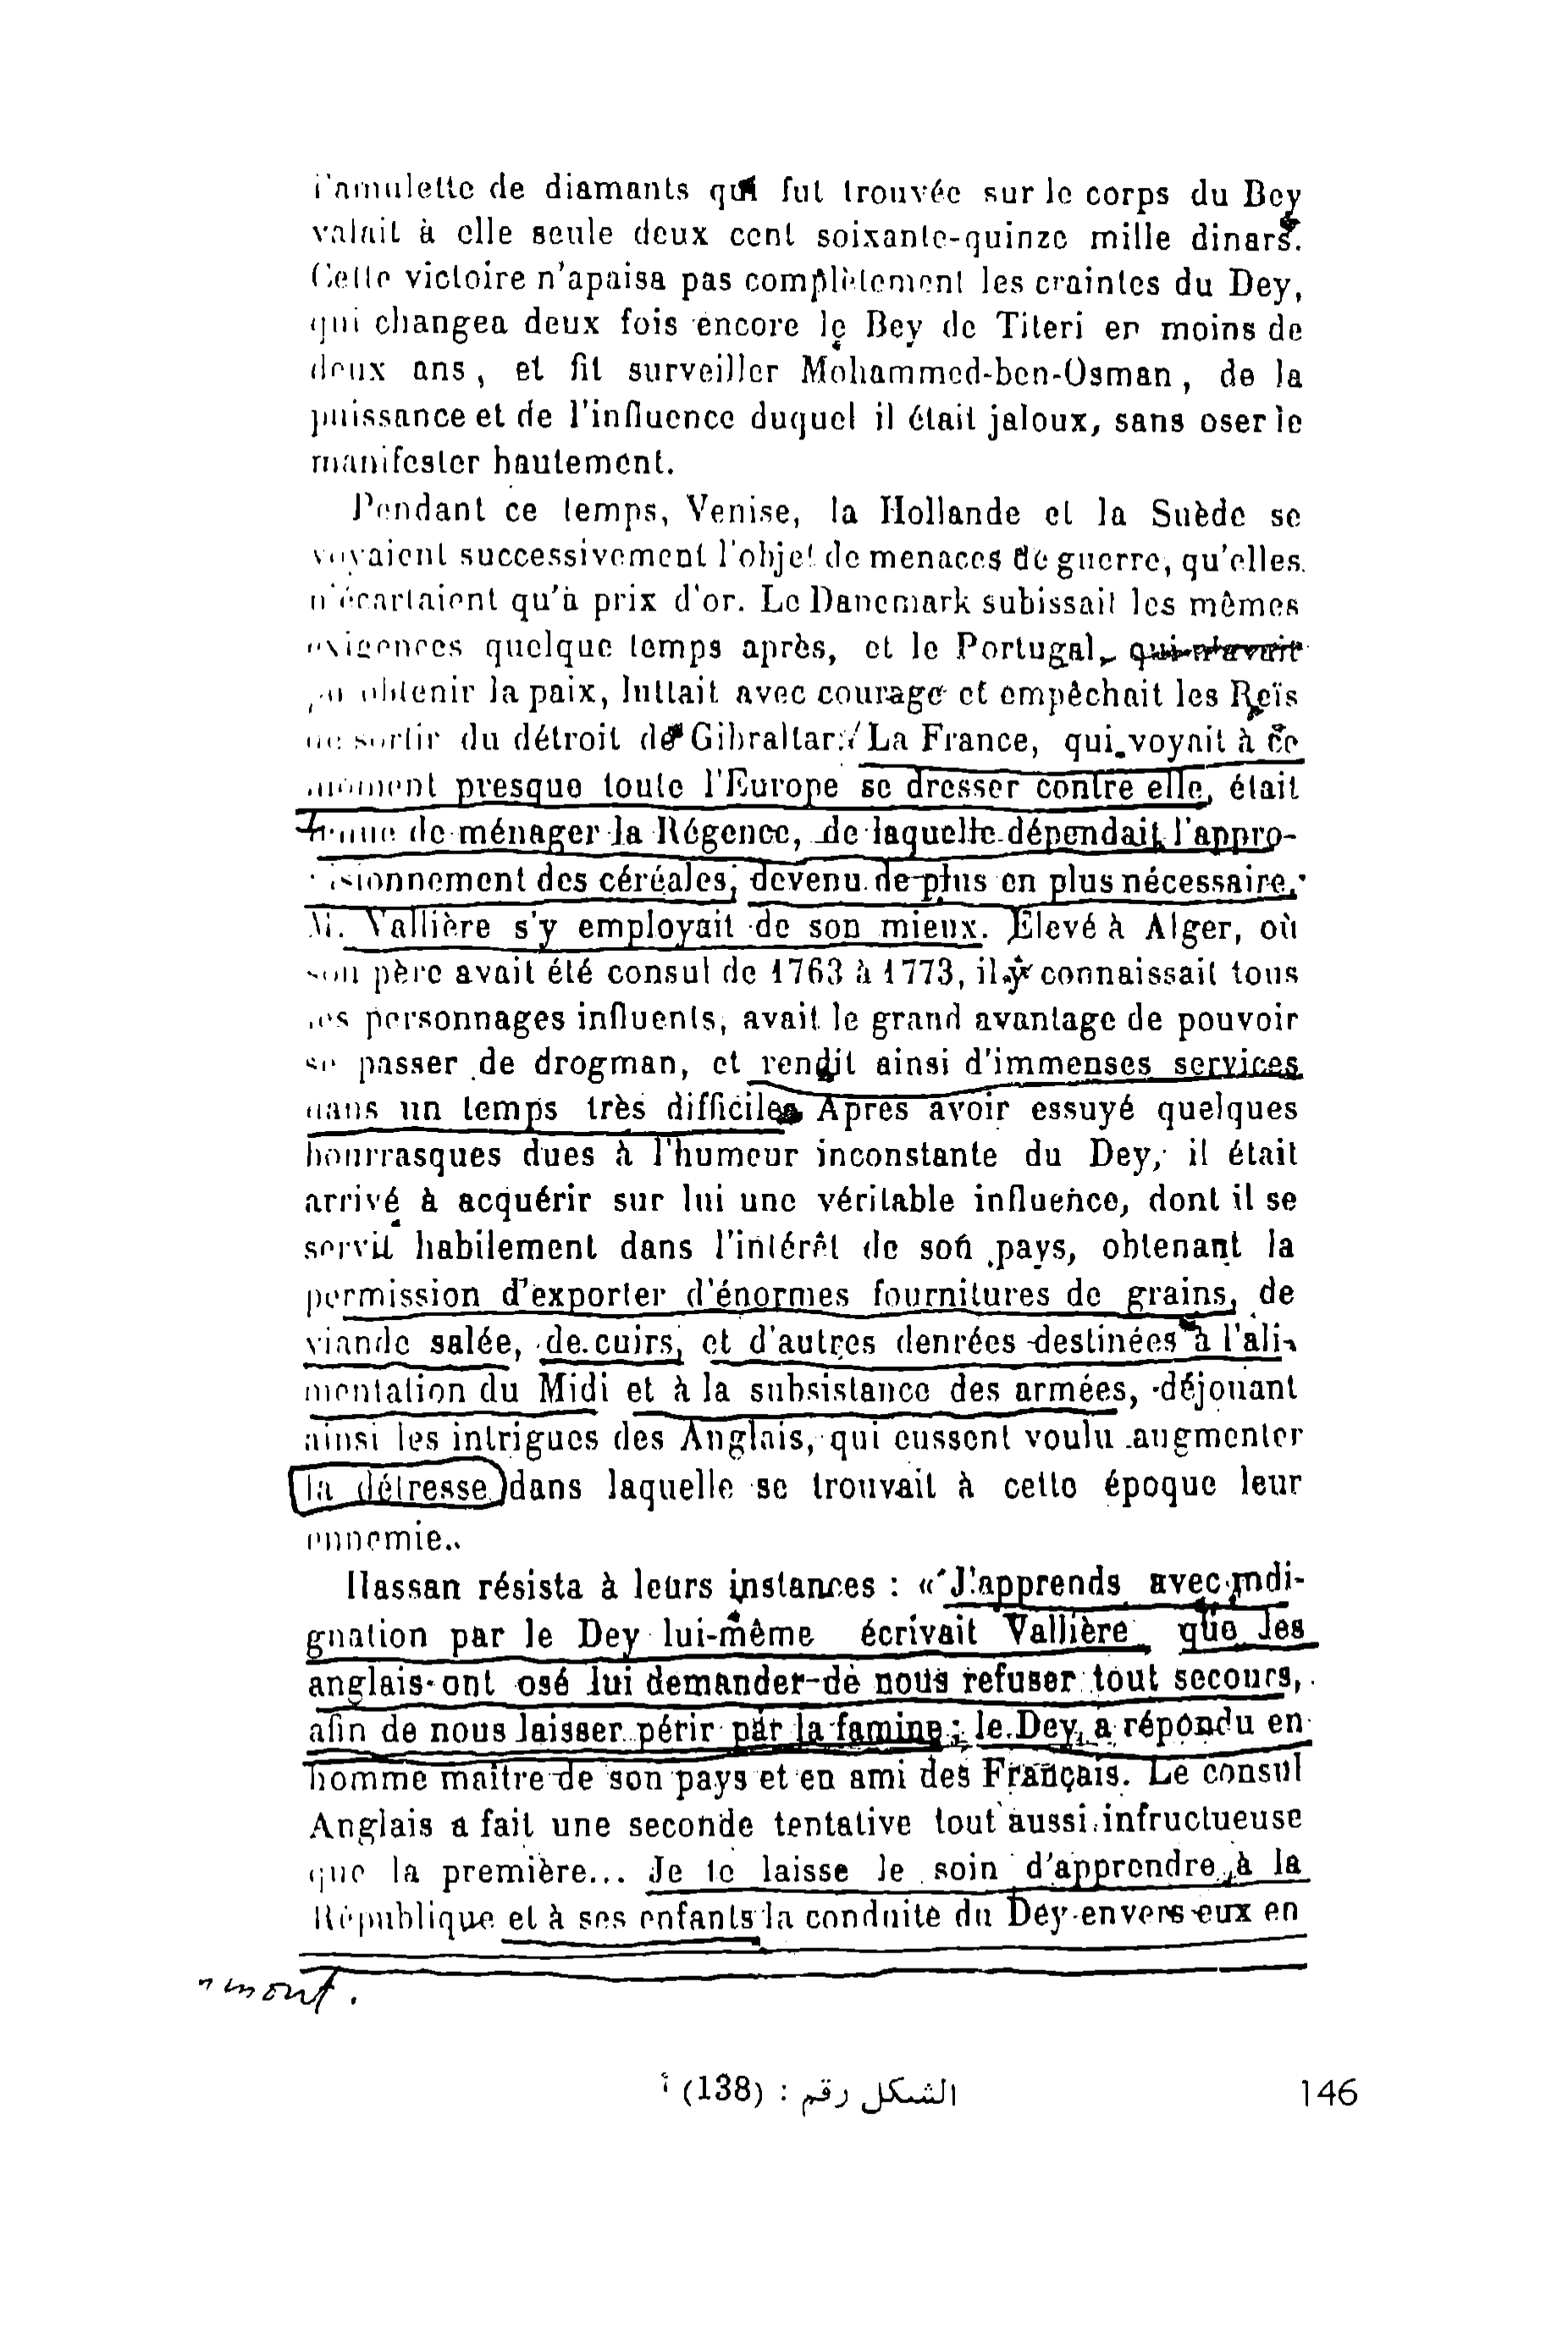 l'amulette de diamants qui fut trouvée sur le corps du Bey
valait à elle seule deux cent soixante-quinze mille dinars.
Cette victoire n'apaisa pas complètement les craintes du Dey,
qui changea deux fois encore le Bey de Titeri en moins de
deux ans, et fit surveiller Mohammed-ben-Osman, de la
puissance et de l'influence duquel il était jaloux, sans oser le
manifester hautement.
Pendant ce temps, Venise, la Hollande et la Suède se
voyaient successivement l'objet de menaces de guerre, qu'elles
n'écartaient qu'à prix d'or. Le Danemark subissait les mêmes
exigences quelque temps après, et le Portugal, qui n'avait
pu obtenir la paix, luttait avec courage et empêchait les Reïs
de sortir du détroit de Gibraltar. / La France, qui voyait à ce
moment presque toute l'Europe se dresser contre elle, était
tenue de ménager la Régence, de laquelle dépendait l'appro-
visionnement des céréales, devenu de plus en plus nécessaire.
M. Vallière s'y employait de son mieux. Élevé à Alger, où
son père avait été consul de 1763 à 1773, il y connaissait tous
les personnages influents, avait le grand avantage de pouvoir
se passer de drogman, et rendit ainsi d'immenses services
dans un temps très difficile. Après avoir essuyé quelques
bourrasques dues à l'humeur inconstante du Dey, il était
arrivé à acquérir sur lui une véritable influence, dont il se
servit habilement dans l'intérêt de son pays, obtenant la
permission d'exporter d'énormes fournitures de grains, de
viande salée, de cuirs, et d'autres denrées destinées à l'ali-
mentation du Midi et à la subsistance des armées, déjouant
ainsi les intrigues des Anglais, qui eussent voulu augmenter
la détresse dans laquelle se trouvait à cette époque leur
ennemie.
Hassan résista à leurs instances : « J'apprends avec indi-
gnation par le Dey lui-même écrivait Vallière, que les
anglais ont osé lui demander de nous refuser tout secours,
afin de nous laisser périr par la famine ; le Dey, a répondu en
homme maître de son pays et en ami des Français. Le consul
Anglais a fait une seconde tentative tout aussi infructueuse
que la première... Je te laisse le soin d'apprendre à la
République et à ses enfants la conduite du Dey envers eux en
الشكل رقم : (138) أ
146